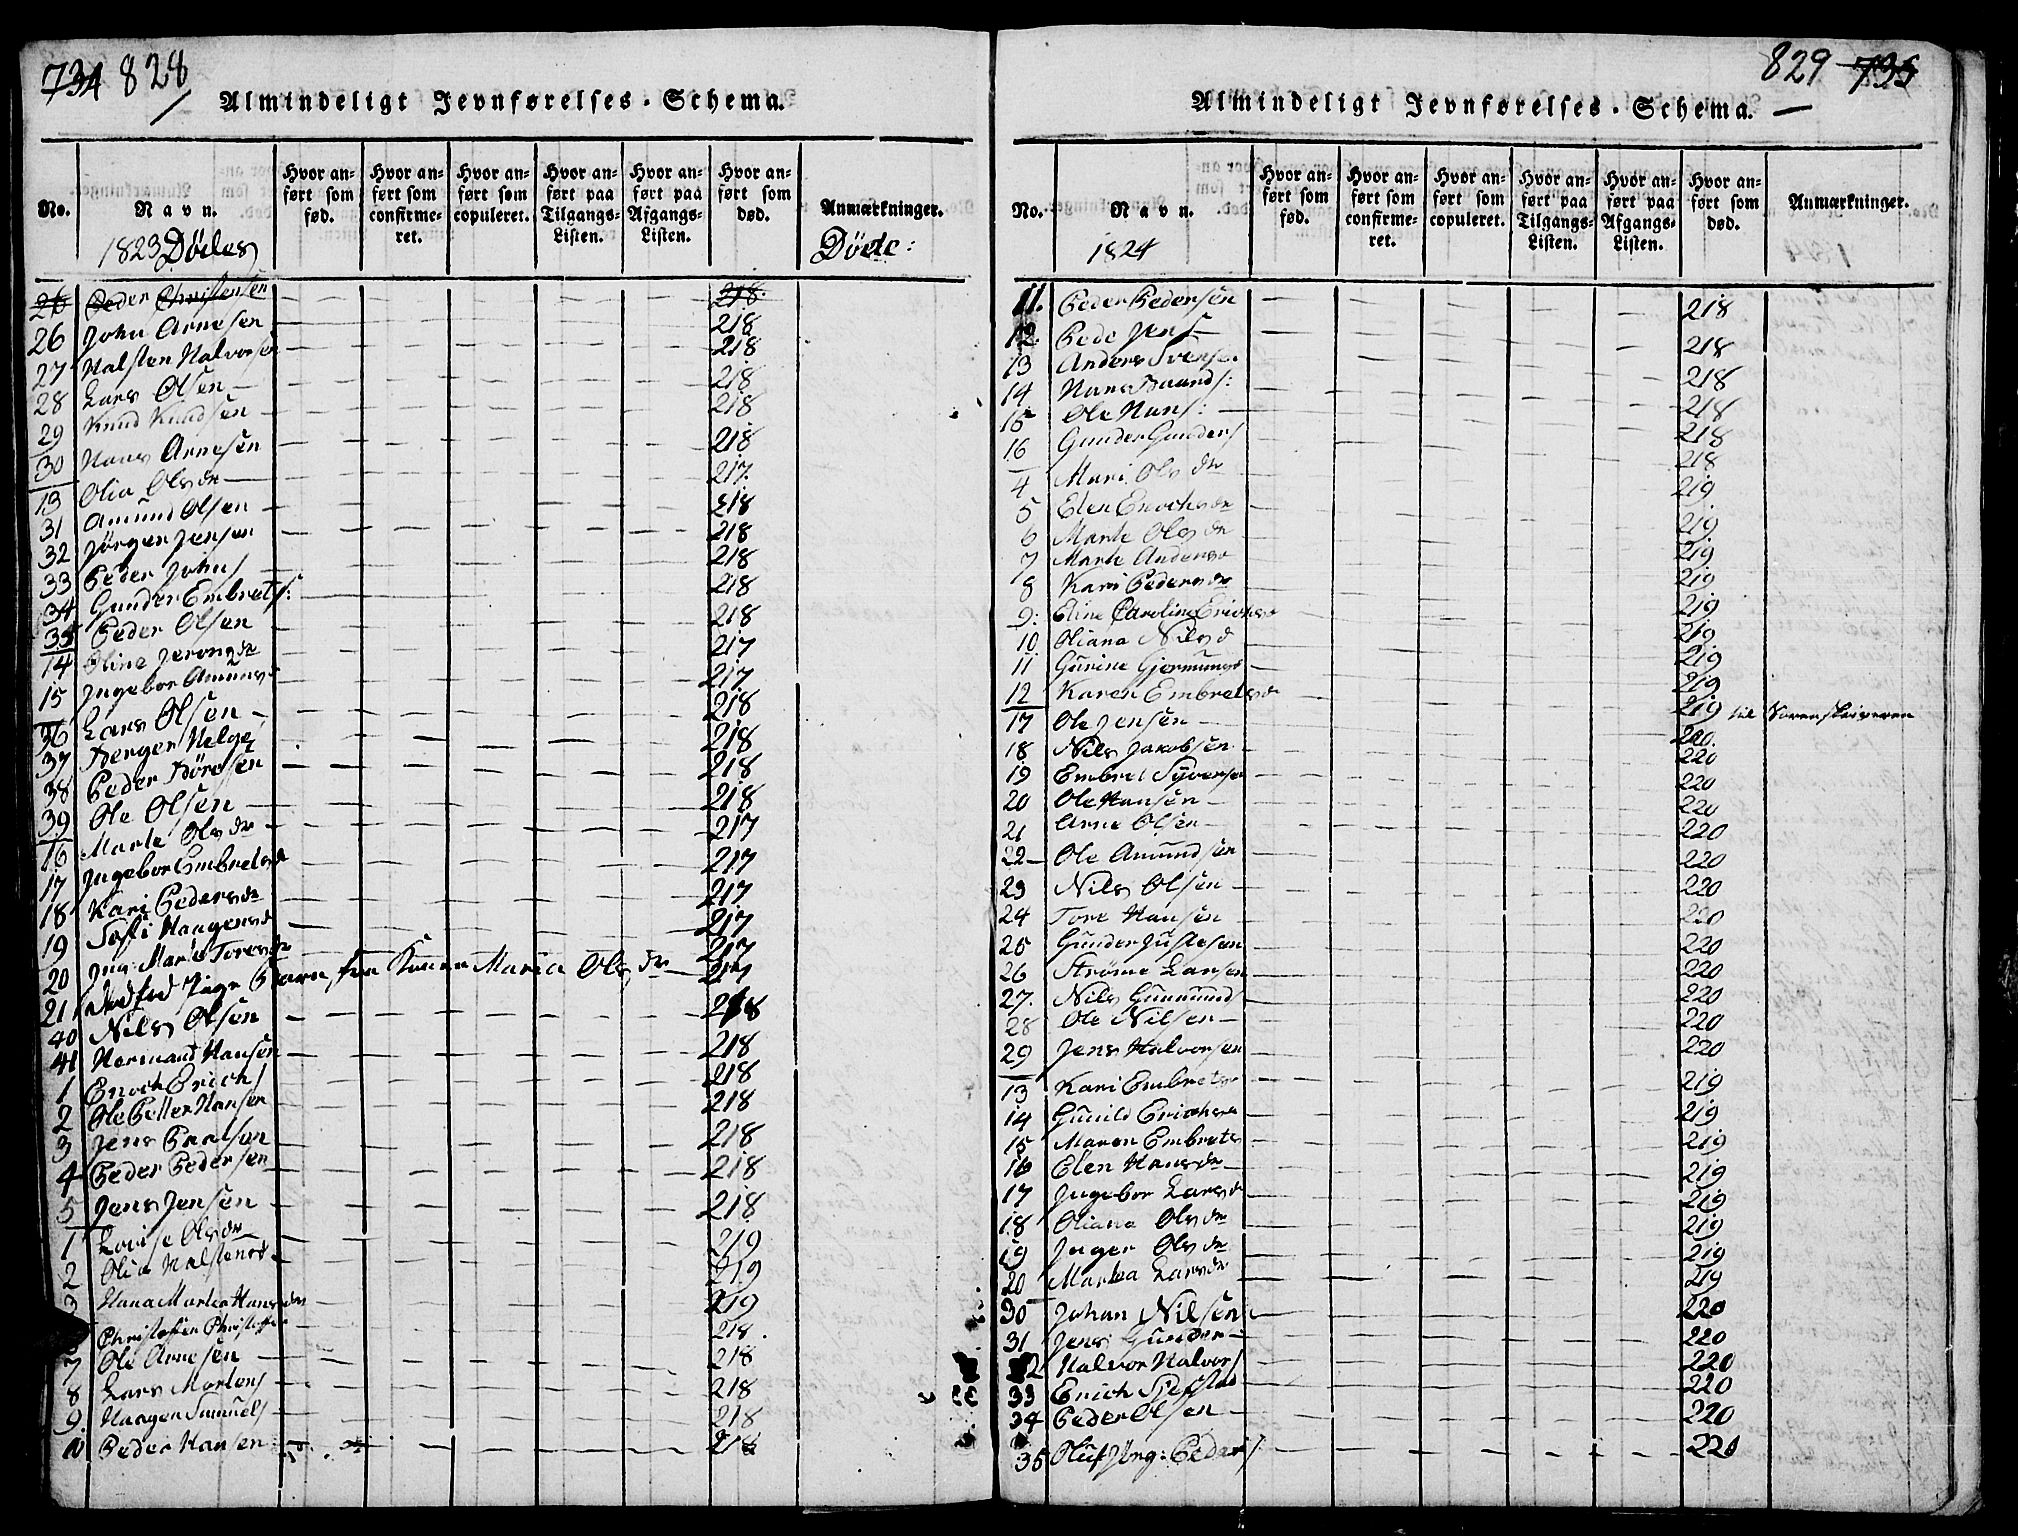 734 828
Almindeligt Jevnførelses-Schema.
No.
Navn.
Hvor anført som fød.
Hvor anført som confirmeret.
Hvor anført som copuleret.
Hvor anført paa Tilgangs-Listen.
Hvor anført paa Afgangs-Listen.
Hvor anført som død.
Anmærkninger.
1823 Dödes
Döde:
26 Peder Christensen 218
26 John Arnesen 218
27 Halsten Halvorsen 218
28 Lars Olsen 218
29 Knud Knudsen 218
30 Hans Arnesen 218
13 Olia Olsdr 217
31 Amund Olsen 218
32 Jörgen Jensen 218
33 Peder Johns 218
34 Gunder Embrets: 218
35 Peder Olsen 218
14 Oline Jeronsdr 217
15 Ingebor Amunds 217
36 Lars Olsen 218
37 Berger Helges 218
38 Peder Böresen 218
39 Ole Olsen 218
16 Marte Olsdr 217
17 Ingebor Embretsd 217
18 Kari Pedersdr 217
19 Sofi Haagensd 217
20 Ing. Marie Toresdr 217
21 dödfød Pige Barn, fra Konen Maria Olsdr 217
40 Nils Olsen 218
41 Hermand Hansen 218
1 Enoch Erichs 218
2 Ole Petter Hansen 218
3 Jens Paalsen 218
4 Peder Pedersen 218
5 Jens Jensen 218
1 Lovise Olsdr 219
2 Olia Halstensd 219
3 Hana Martea Hansdr 219
Christofer Christoffer 218
7 Ole Arnesen 218
8 Lars Mortens 218
9 Haagen Samuels 218
10 Peder Hansen 218
829 735
Almindeligt Jevnførelses-Schema.
No.
Navn.
Hvor anført som fød.
Hvor anført som confirmeret.
Hvor anført som copuleret.
Hvor anført paa Tilgangs-Listen.
Hvor anført paa Afgangs-Listen.
Hvor anført som død.
Anmærkninger.
1824
11. Peder Pedersen 218
12. Pede Jens 218
13 Anders Svense. 218
14 Hans Baards: 218
15 Ole Hans: 218
16 Gunder Gunders 218
4 Mari Olsdr 219
5 Elen Enochsdr 219
6 Marte Olsdr 219
7 Marte Anders 219
8 Kari Pedersdr 219
9: Eline Caroline Erichsd 219
10 Oliana Nilsd 219
11 Gurine Gjermunds 219
12 Karen Embretsd 219 til Sorenskriveren
17 Ole Jensen 220.
18 Nils Jakobsen 220
19 Embret Syversen 220
20 Ole Hansen 220
21 Arne Olsen 220
22 Ole Amundsen 220
23 Nils Olsen 220
24 Tore Hansen 220
25 Gunder Justesen 220
26 Strøme Larsen 220
27. Nils Gunmunds 220
28 Ole Nilsen 220
29 Jens Halvorsen 220
13 Kari Embrets 219
14 Gunild Erichs 219
15 Maren Embrets 219
16 Elen Hansdr 219
17 Ingebor Larsd 219
18 Oliana Olsdr 219
19 Inger Olsdr 219
20 Martea Larsdr 219
30 Johan Nilsen 220
31 Jens Gunder 220
32 Halvor Halvors 220
33 Erich 220
34 Peder Olsen 220
35 Oluf Jörg: Peders 220